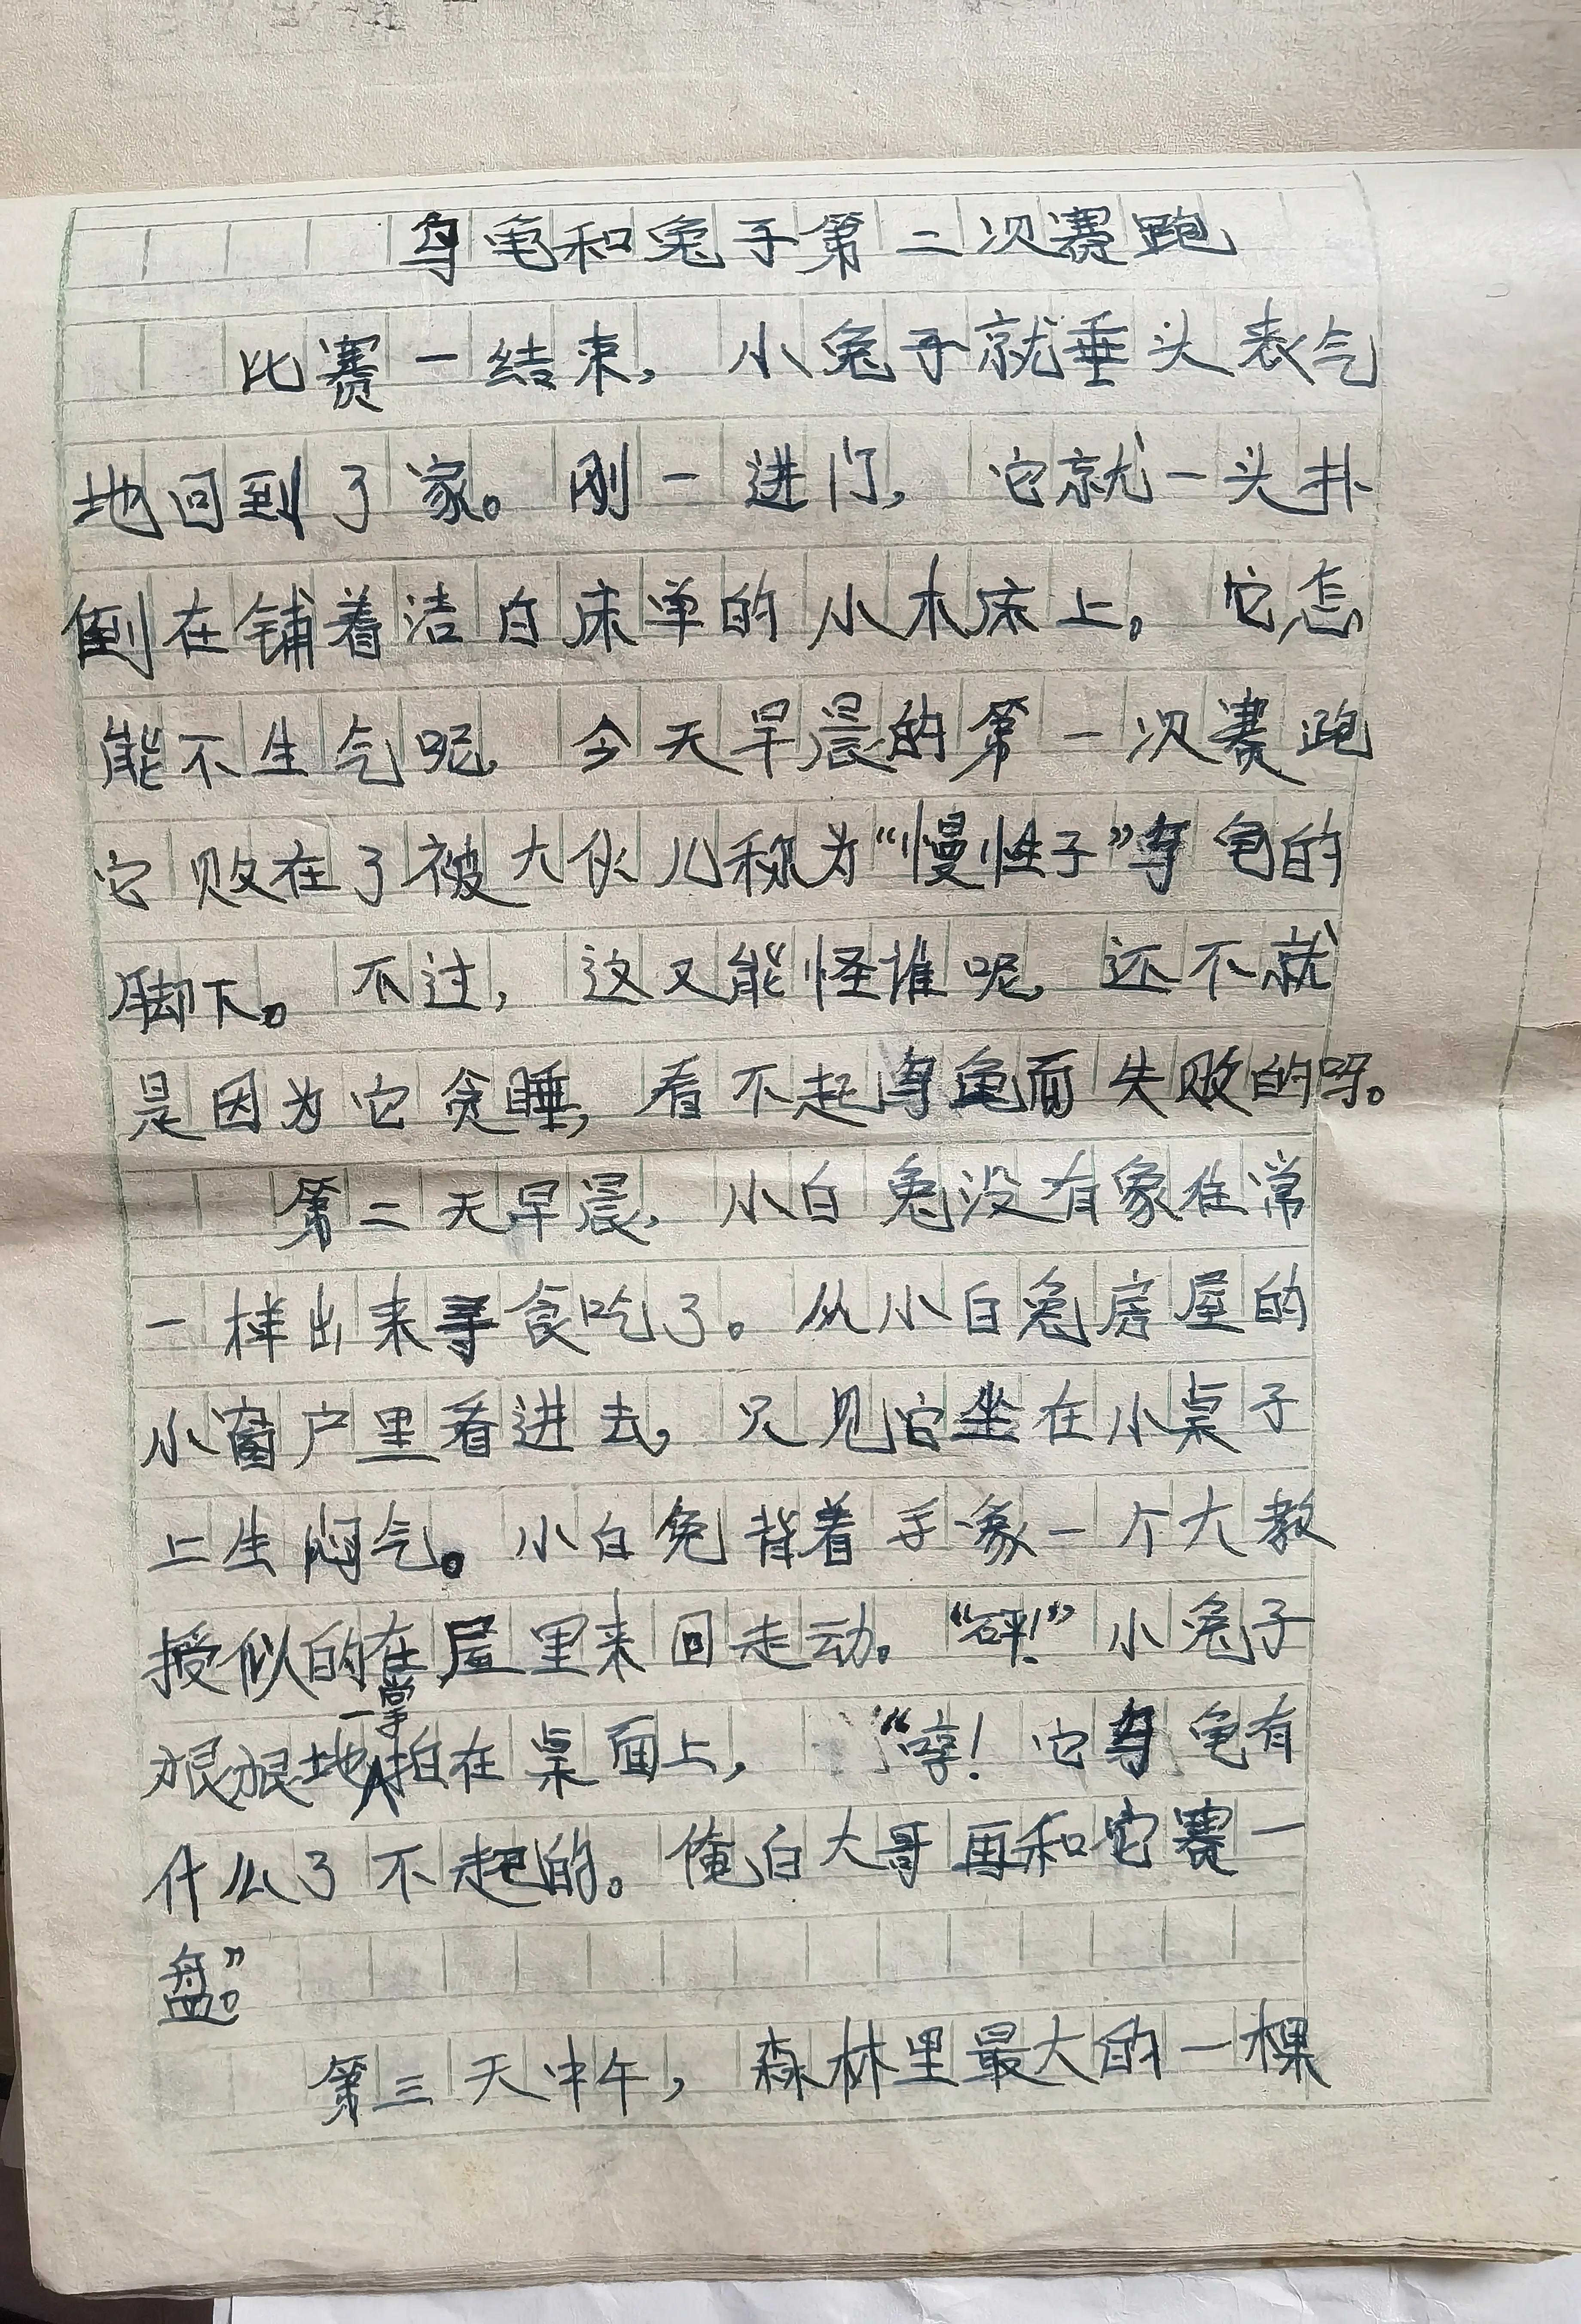 乌龟和兔子第二次赛跑
比赛一结束，小兔子就垂头丧气
地回到了家。刚一进门，它就一头扑
倒在铺着洁白床单的小木床上。它怎
能不生气呢，今天早晨的第一次赛跑
它败在了被大伙儿称为“慢性子”乌龟的
脚下。不过，这又能怪谁呢，还不就
是因为它贪睡，看不起乌龟而失败的呀。
第二天早晨，小白兔没有象往常
一样出来寻食吃了。从小白兔房屋的
小窗户里看进去，只见它坐在小桌子
上生闷气。小白兔背着手象一个大教
授似的在屋里来回走动。“砰！”小兔子
狠狠地一掌拍在桌面上，“哼！它乌龟有
什么了不起的。俺白大哥再和它赛一
盘。”
第三天中午，森林里最大的一棵